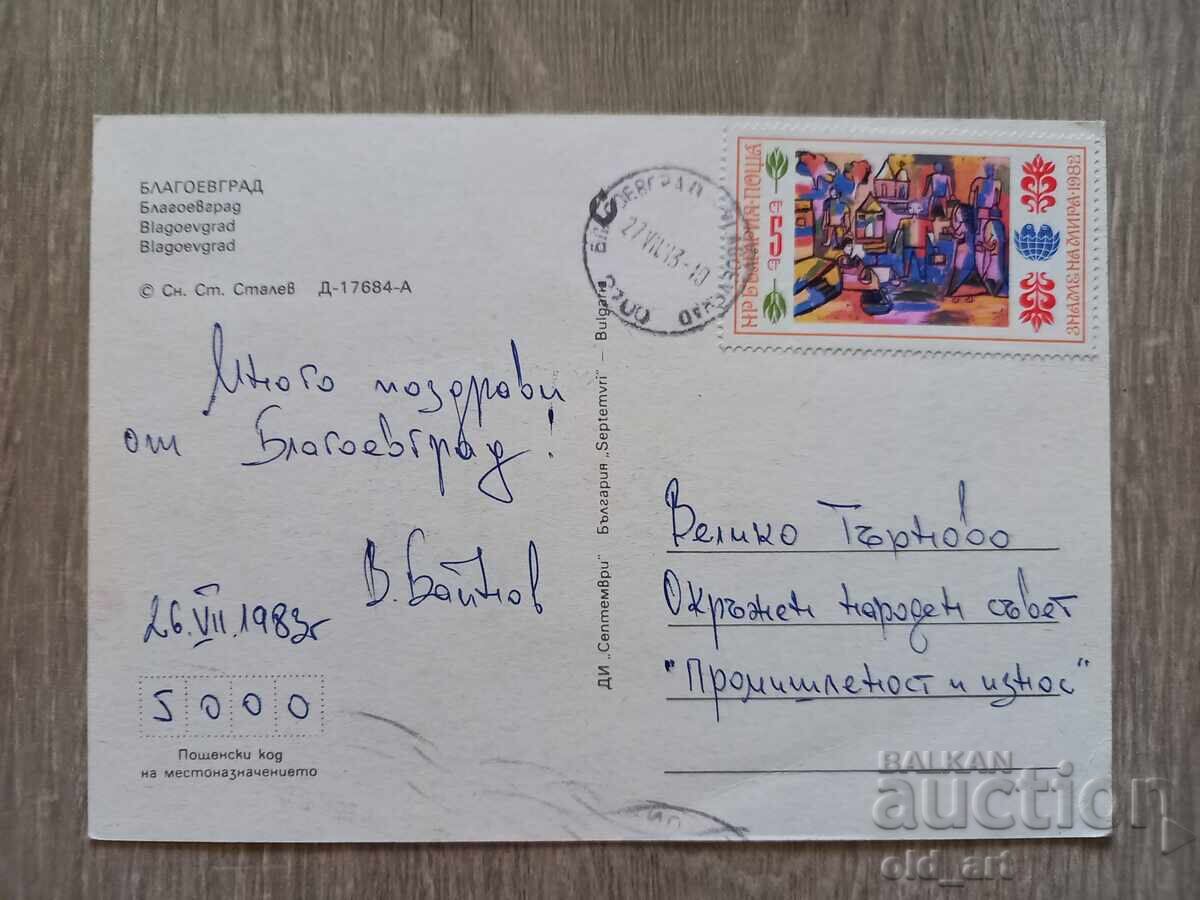 БЛАГОЕВГРАД
Благоевград
Blagoevgrad
Blagoevgrad
© Сн. Ст. Сталев Д-17684-А
Много поздрави
от Благоевград!
В. Байнов
26.VII.1983г
5000
Пощенски код
на местоназначението
ДИ „Септември" България „Septemvri" – Bulgaria
НР БЪЛГАРИЯ·ПОЩА
5
ЗНАМЕ НА МИРА·1982
Велико Търново
Окръжен народен съвет
"Промишленост и износ"
BALKAN
auction
old_art